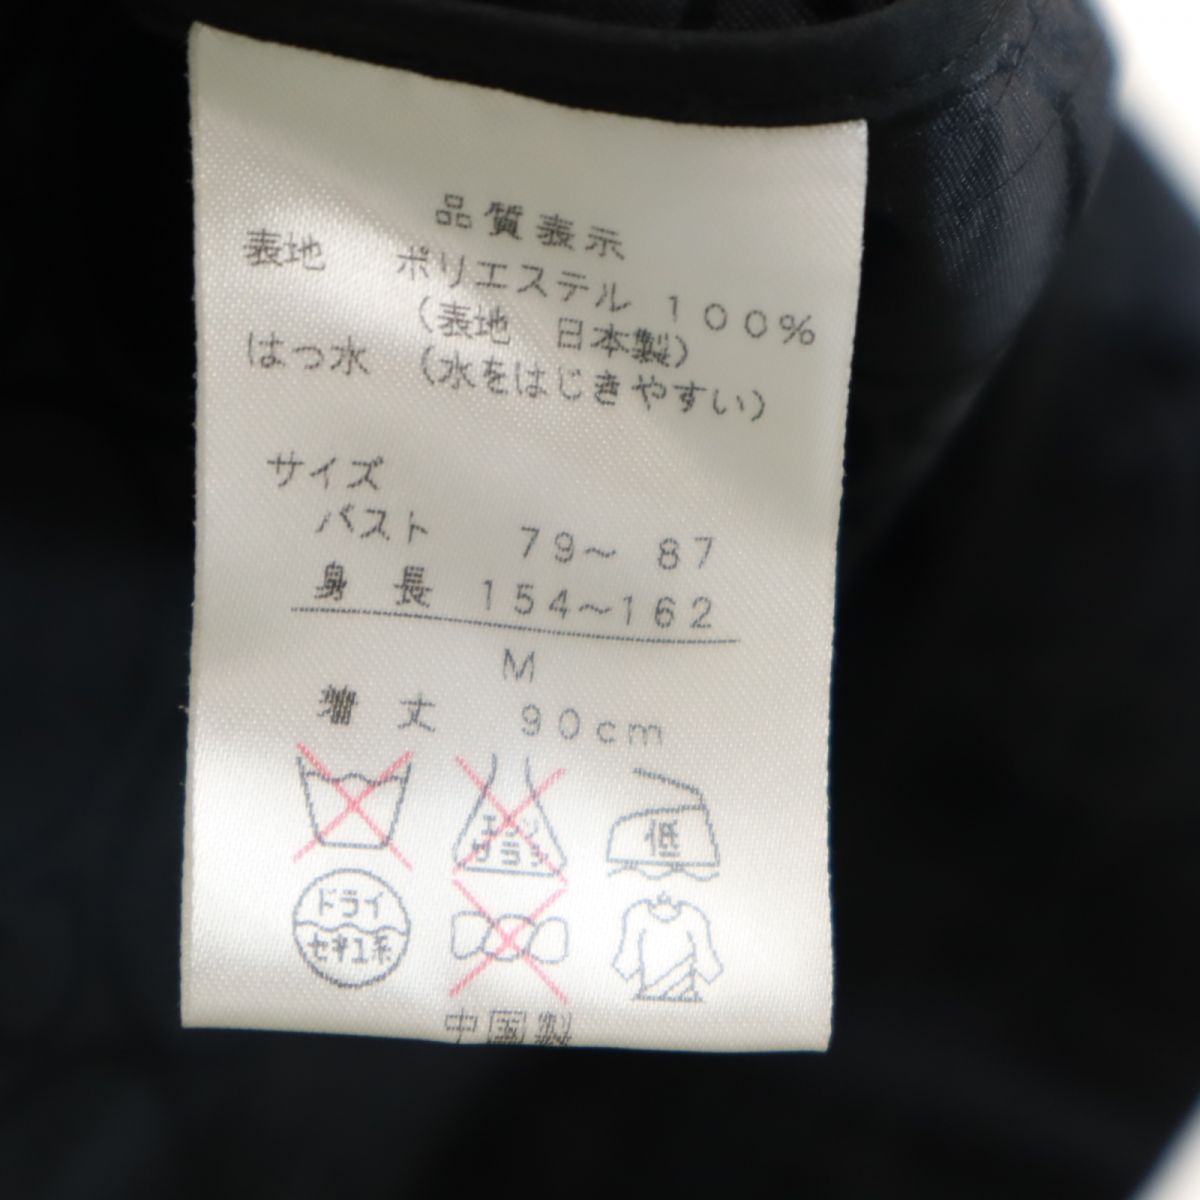 品質表示
表地 ポリエステル 100%
(表地 日本製)
はっ水 (水をはじきやすい)
サイズ
バスト 79～ 87
身長 154～162
M
着丈 90cm
エンソ
サラシ
低
ドライ
セキユ系
中国製